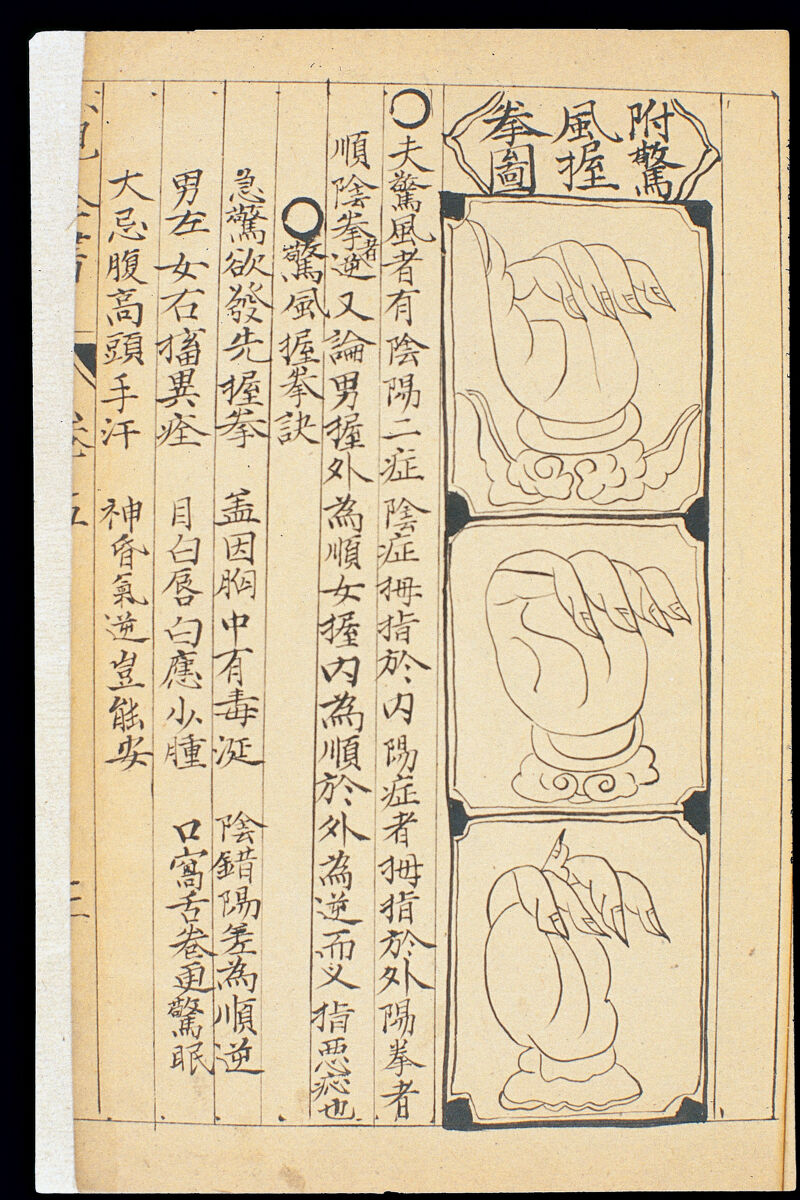 附驚
風握
拳圖
○夫驚風者有陰陽二症陰症拇指於内陽症者拇指於外陽拳者
順陰拳者逆又論男握外為順女握内為順於外為逆而乂指惡症也
○驚風握拳訣
急驚欲發先握拳 盖因胸中有毒涎 陰錯陽差為順逆
男左女右搐異痊 目白唇白應少腫 口窩舌卷更驚眠
大忌腹高頭手汗 神昏氣逆豈能安
卷五
三